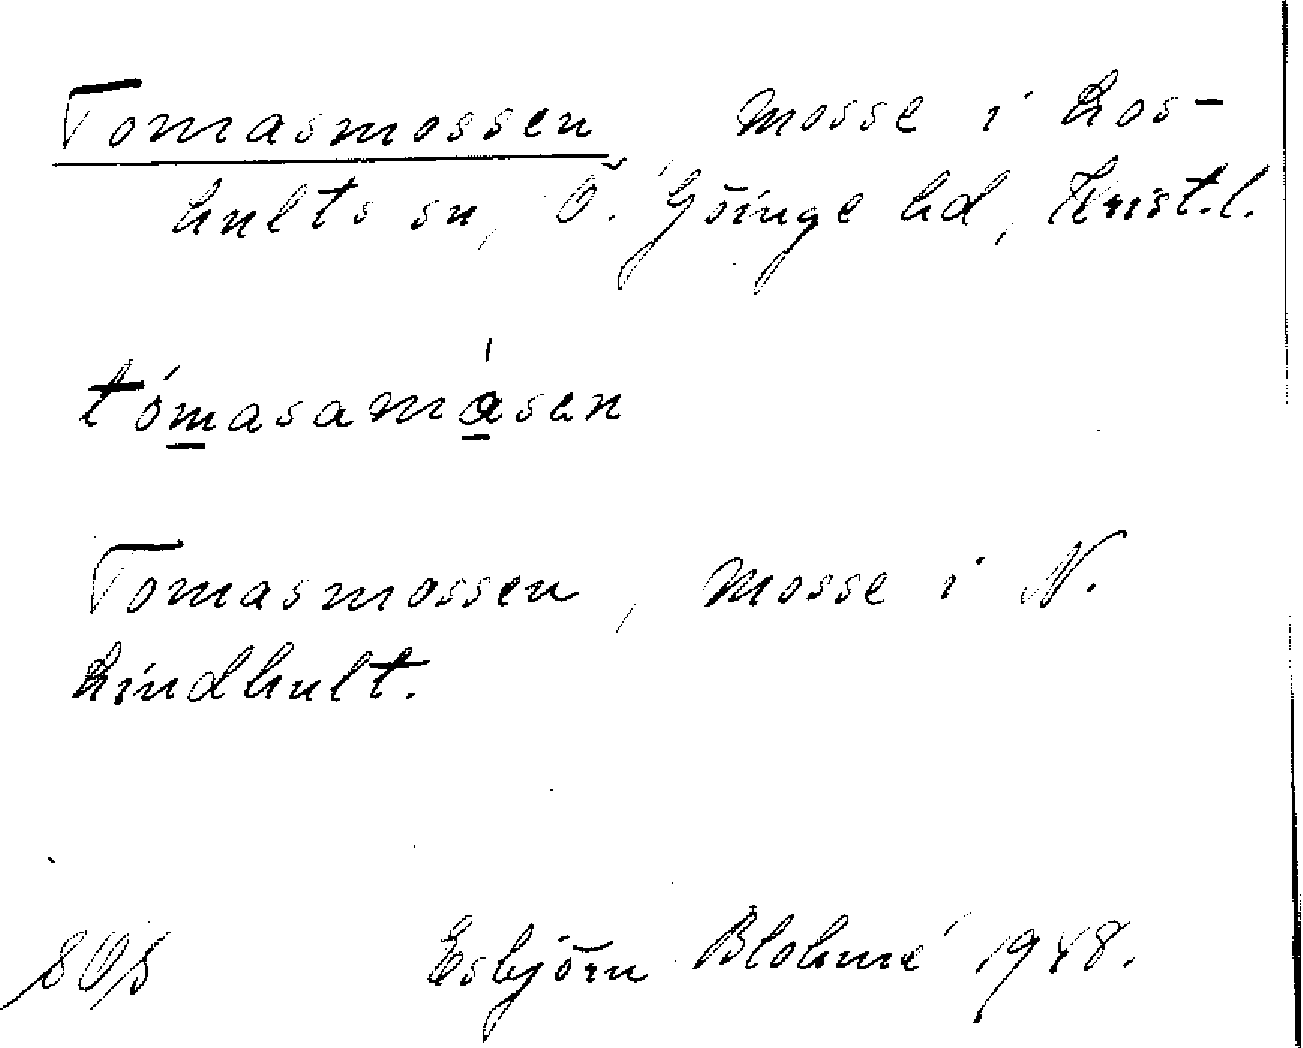 Tomasmossen mosse i Los-
hults sn, Ö. Göinge hd, Krist.l.
tómasamåsen
Tomasmossen, mosse i N.
Lindhult.
Esbjörn Blohmé 1948.